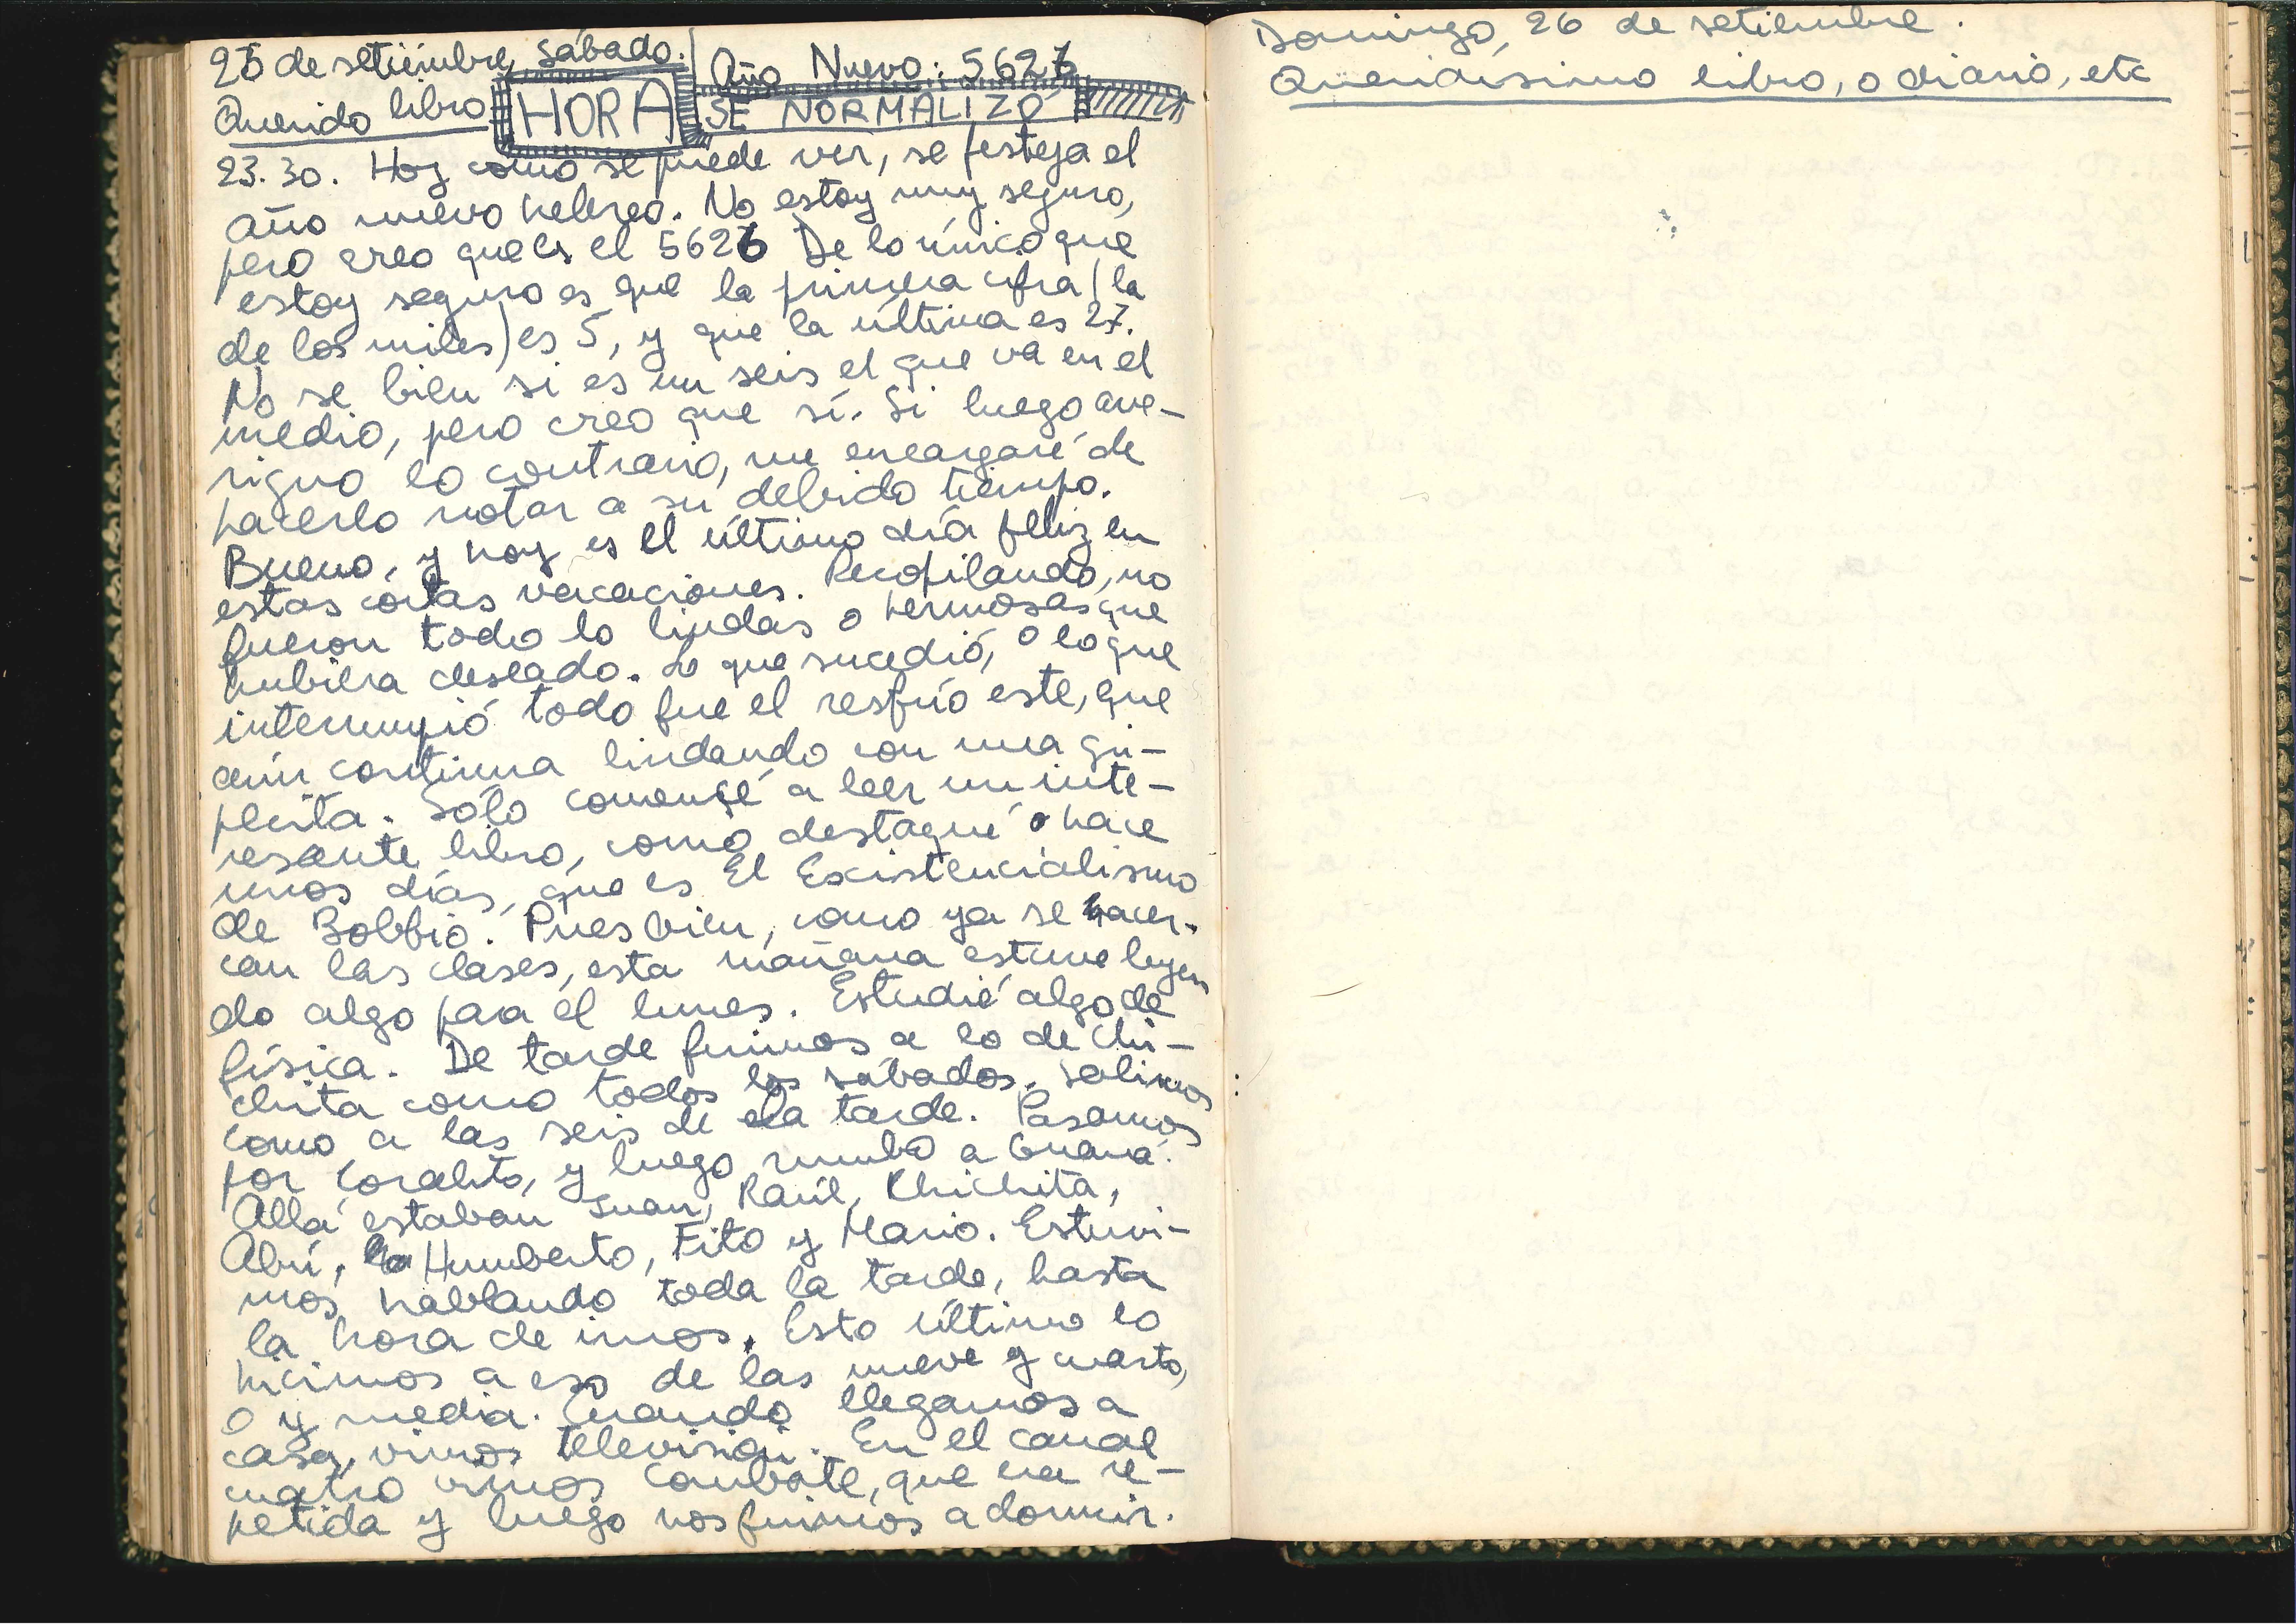 25 de setiembre, sábado.
Año Nuevo: 5627
Querido libro
HORA
SE NORMALIZO
23.30. Hoy como se puede ver, se festeja el
año nuevo hebreo. No estoy muy seguro,
pero creo que es el 5626 De lo único que
estoy seguro es que la primera cifra (la
de los miles) es 5, y que la última es 27.
No se bien si es un seis el que va en el
medio, pero creo que sí. Si luego ave-
riguo lo contrario, me encargaré de
hacerlo notar a su debido tiempo.
Bueno, y hoy es el último día feliz en
estas cortas vacaciones. Recopilando, no
fueron todo lo lindas o hermosas que
hubiera deseado. Lo que sucedió, o lo que
interrumpió todo fue el resfrío este, que
aún continua lindando con una gri-
pecita. Sólo comencé a leer un inte-
resante libro, como destaqué hace
unos días, que es El Existencialismo
de Bobbio. Pues bien, como ya se hacer-
can las clases, esta mañana estuve leyen
do algo para el lunes. Estudié algo de
física. De tarde fuimos a lo de Chi-
chita como todos los sábados. Salimos
como a las seis de la tarde. Pasamos
por Coralito, y luego rumbo a Guaná.
Allá estaban Juan, Raúl, Chichita,
Abrí, Humberto, Fito y Mario. Estuvi-
mos hablando toda la tarde, hasta
la hora de irnos. Esto último lo
hicimos a eso de las nueve y cuarto,
o y media. Cuando llegamos a
casa, vimos televisión. En el canal
cuatro vimos Combate, que era re-
petida y luego nos fuimos a dormir.
Domingo, 26 de setiembre.
Queridísimo libro, o diario, etc